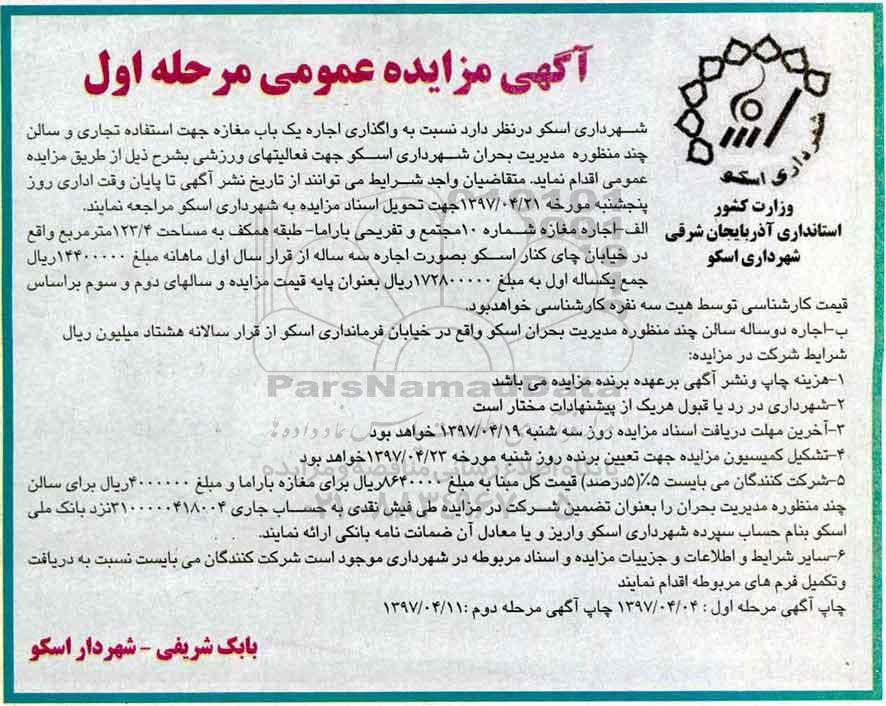 آگهی مزایده عمومی مرحله اول
شهرداری اسکو
وزارت کشور
استانداری آذربایجان شرقی
شهرداری اسکو
شهرداری اسکو درنظر دارد نسبت به واگذاری اجاره یک باب مغازه جهت استفاده تجاری و سالن
چند منظوره مدیریت بحران شهرداری اسکو جهت فعالیتهای ورزشی بشرح ذیل از طریق مزایده
عمومی اقدام نماید. متقاضیان واجد شرایط می توانند از تاریخ نشر آگهی تا پایان وقت اداری روز
پنجشنبه مورخه ۱۳۹۷/۰۴/۲۱جهت تحویل اسناد مزایده به شهرداری اسکو مراجعه نمایند.
الف-اجاره مغازه شماره ۱۰مجتمع و تفریحی باراما- طبقه همکف به مساحت ۱۲۳/۴مترمربع واقع
در خیابان چای کنار اسکو بصورت اجاره سه ساله از قرار سال اول ماهانه مبلغ ۱۴۴۰۰۰۰۰ریال
جمع یکساله اول به مبلغ ۱۷۲۸۰۰۰۰۰ریال بعنوان پایه قیمت مزایده و سالهای دوم و سوم براساس
قیمت کارشناسی توسط هیت سه نفره کارشناسی خواهدبود.
ب-اجاره دوساله سالن چند منظوره مدیریت بحران اسکو واقع در خیابان فرمانداری اسکو از قرار سالانه هشتاد میلیون ریال
شرایط شرکت در مزایده:
۱-هزینه چاپ ونشر آگهی برعهده برنده مزایده می باشد
۲-شهرداری در رد یا قبول هریک از پیشنهادات مختار است
۳-آخرین مهلت دریافت اسناد مزایده روز سه شنبه ۱۳۹۷/۰۴/۱۹ خواهد بود
۴-تشکیل کمیسیون مزایده جهت تعیین برنده روز شنبه مورخه ۱۳۹۷/۰۴/۲۳خواهد بود
۵-شرکت کنندگان می بایست ۵٪(۵درصد) قیمت کل مبنا به مبلغ ۸۶۴۰۰۰۰ریال برای مغازه باراما و مبلغ ۴۰۰۰۰۰۰ریال برای سالن
چند منظوره مدیریت بحران را بعنوان تضمین شرکت در مزایده طی فیش نقدی به حساب جاری ۳۱۰۰۰۰۰۴۱۸۰۰۴نزد بانک ملی
اسکو بنام حساب سپرده شهرداری اسکو واریز و یا معادل آن ضمانت نامه بانکی ارائه نمایند.
۶-سایر شرایط و اطلاعات و جزییات مزایده و اسناد مربوطه در شهرداری موجود است شرکت کنندگان می بایست نسبت به دریافت
وتکمیل فرم های مربوطه اقدام نمایند
چاپ آگهی مرحله اول : ۱۳۹۷/۰۴/۰۴ چاپ آگهی مرحله دوم :۱۳۹۷/۰۴/۱۱
بابک شریفی - شهردار اسکو
ParsNamadData
پایگاه اطلاع رسانی مناقصه و مزایده